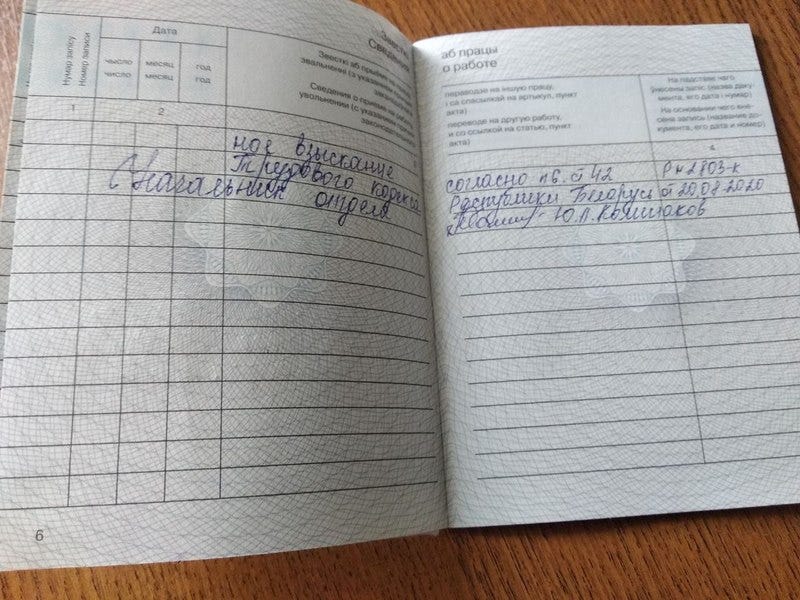 Звесткі
Сведения
Нумар запісу
Номер записи
Дата
чысло
число
месяц
месяц
год
год
Звесткі аб прыёме на
звальненні (з указаннем
Сведения о приеме на работу,
увольнении (с указанием
законодательного
1
2
ное взыскание
Трудового кодекса
Начальник отдела
6
аб працы
о работе
пераводзе на іншую працу,
і са спасылкай на артыкул, пункт
акта)
переводе на другую работу,
и со ссылкой на статью, пункт
акта)
На падставе чаго
ўнесены запіс (назва даку-
мента, яго дата і нумар)
На основании чего вне-
сена запись (название до-
кумента, его дата и номер)
4
согласно п6. ст 42 Р № 2803-к
Республики Беларусь от 20.08.2020